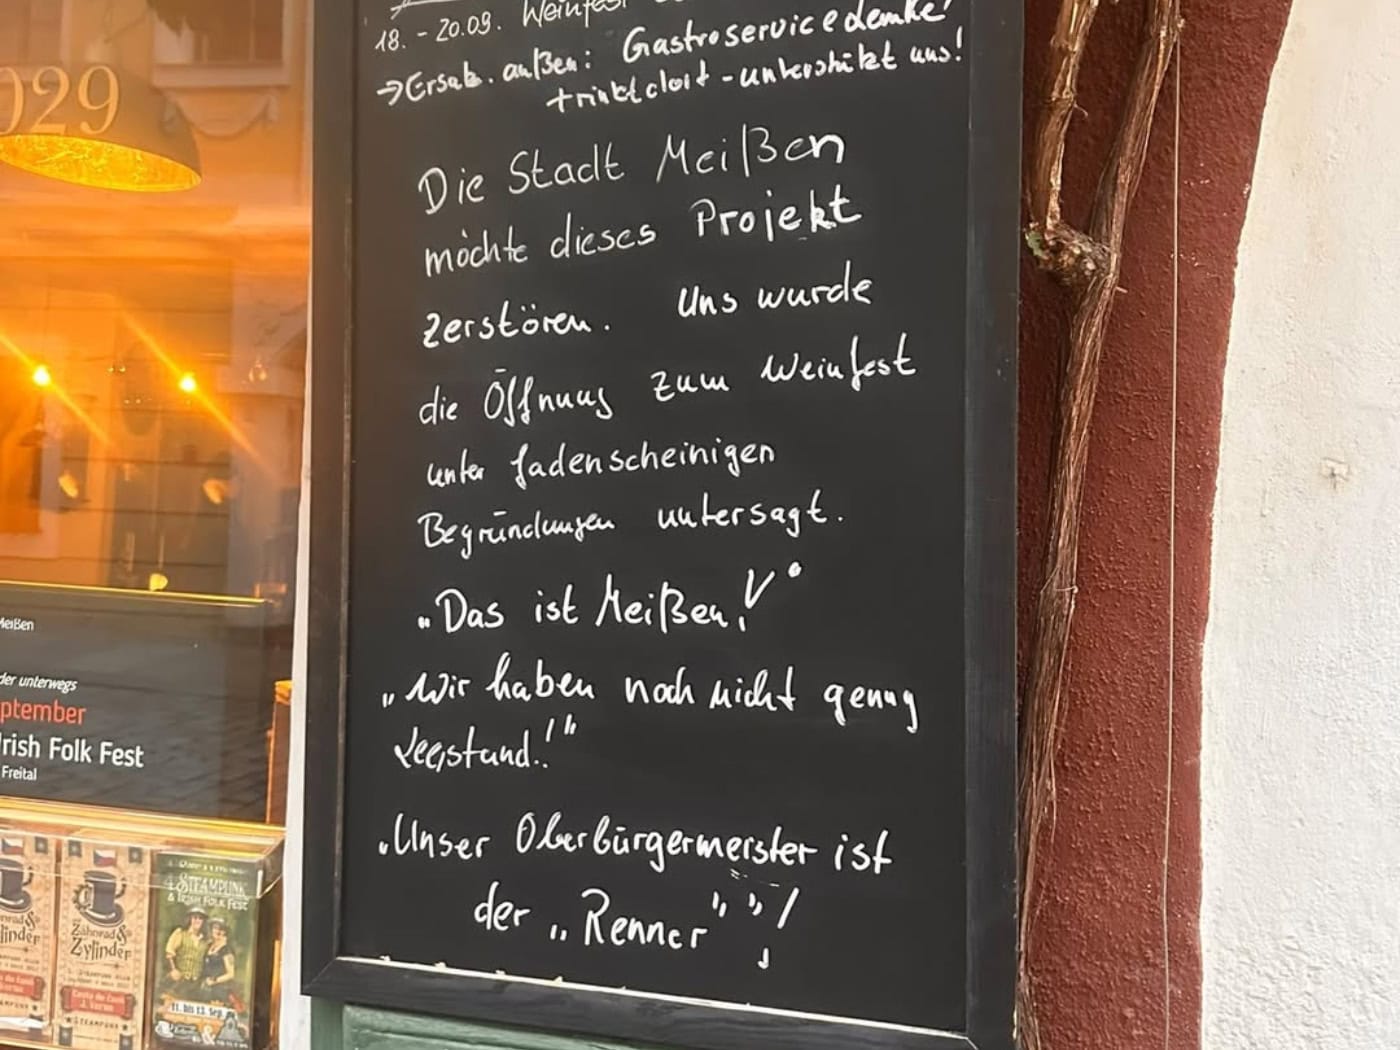 18. - 20.09. Weinfest
→ Ersatz. außen: Gastroservice demke!
trinkt dort - unterstützt uns!
Die Stadt Meißen
möchte dieses Projekt
zerstören. Uns wurde
die Öffnung zum Weinfest
unter fadenscheinigen
Begründungen untersagt.
„Das ist Meißen!"
„Wir haben noch nicht genug
Leerstand.!"
„Unser Oberbürgermeister ist
der „Renner""!
029
Meißen
der unterwegs
ptember
Irish Folk Fest
Freital
Zahnrad &
Zylinder
STEAMPUNK
linder
Zahnrad &
Zylinder
STEAMPUNK
STEAMPUNK
& IRISH FOLK FEST
11. bis 13. Sep.